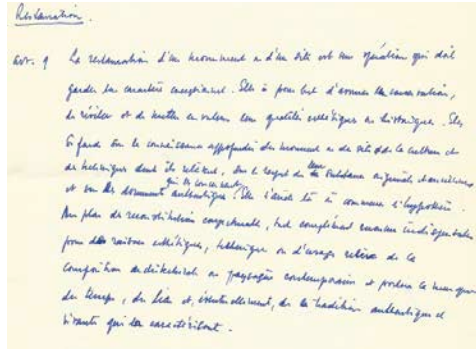 Restauration.
art. 9 La restauration d'un monument ou d'un site est une opération qui doit
garder un caractère exceptionnel. Elle a pour but d'assurer la conservation,
de révéler et de mettre en valeur leur qualités esthétiques ou historiques. Elle
se fonde sur la connaissance approfondie du monument ou du site de la culture et
des techniques dont ils relèvent, sur le respect de leur substance originale
et sur les documents authentiques qui les concernent. Elle s'arrête là où commence l'hypothèse.
Au plan de reconstitution conjecturale, tout complément reconnu indispensable
pour des raisons esthétiques, technique ou d'usage relève de la
composition architecturale ou paysagère contemporaine et portera la marque
du temps, du lieu et, éventuellement, de la tradition authentique et
vivante qui les caractérisent.